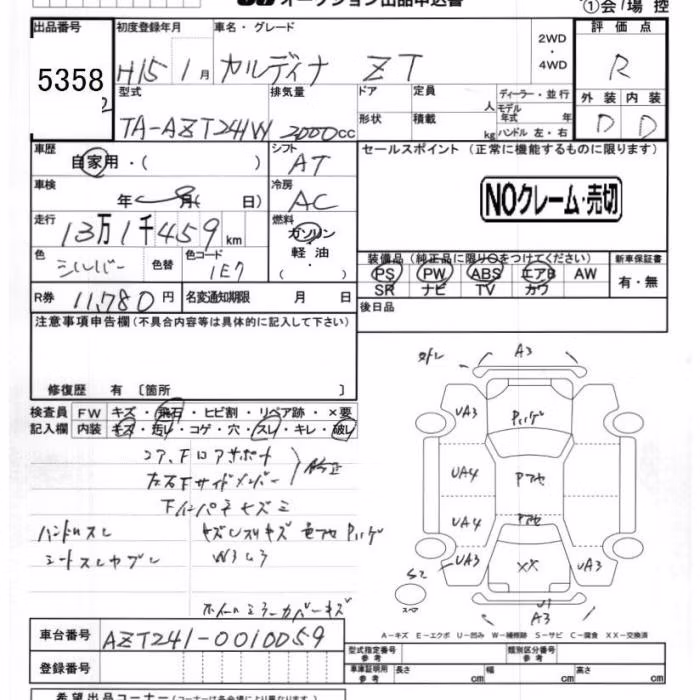 オークション出品申込書
①会場 控
出品番号 初度登録年月 車名・グレード 2WD・4WD 評価点
5358 H15 1月 カルディナ ZT R
2
型式 排気量 ドア 定員 人 ディーラー・並行 外装 内装
モデル年式 年
TA-AZT241W 2000cc 形状 積載 kg ハンドル 左・右 D D
車歴 自家用・( ) シフト AT セールスポイント (正常に機能するものに限ります)
車検 年 月( 日) 冷房 AC NOクレーム・売切
走行 13万1千459km 燃料 ガソリン
軽油
・( )
色 シルバー 色替 色コード 1E7
装備品 (純正品に限り○をつけてください) 新車保証書
PS PW ABS エアB AW 有・無
SR ナビ TV カワ
R券 11,780円 名変通知期限 月 日 後日品
注意事項申告欄(不具合内容等は具体的に記入して下さい)
修復歴 有 〔箇所 〕
検査員 FW キズ・飛石・ヒビ割・リペア跡・×要
記入欄 内装 キズ・汚レ・コゲ・穴・スレ・キレ・破レ
コア、フロアサポート
左右下サイドメンバー
修正
下インパネキズミ
ハンドルスレ
シートスレヤブレ
ホイールミラーカバーキズ
A3
UA3 Pハゲ UA3
UA4 Pアセ
UA4 Pアセ
UA3 XX UA3
S2
スペア
U1
A3
A－キズ E－エクボ U－凹み W－補修跡 S－サビ C－腐食 XX－交換済
車台番号 AZT241-0010059
登録番号
型式指定番号 参考 類別区分番号 参考
車庫証明用 参考 長さ cm 幅 cm 高さ cm
希望出品コーナー